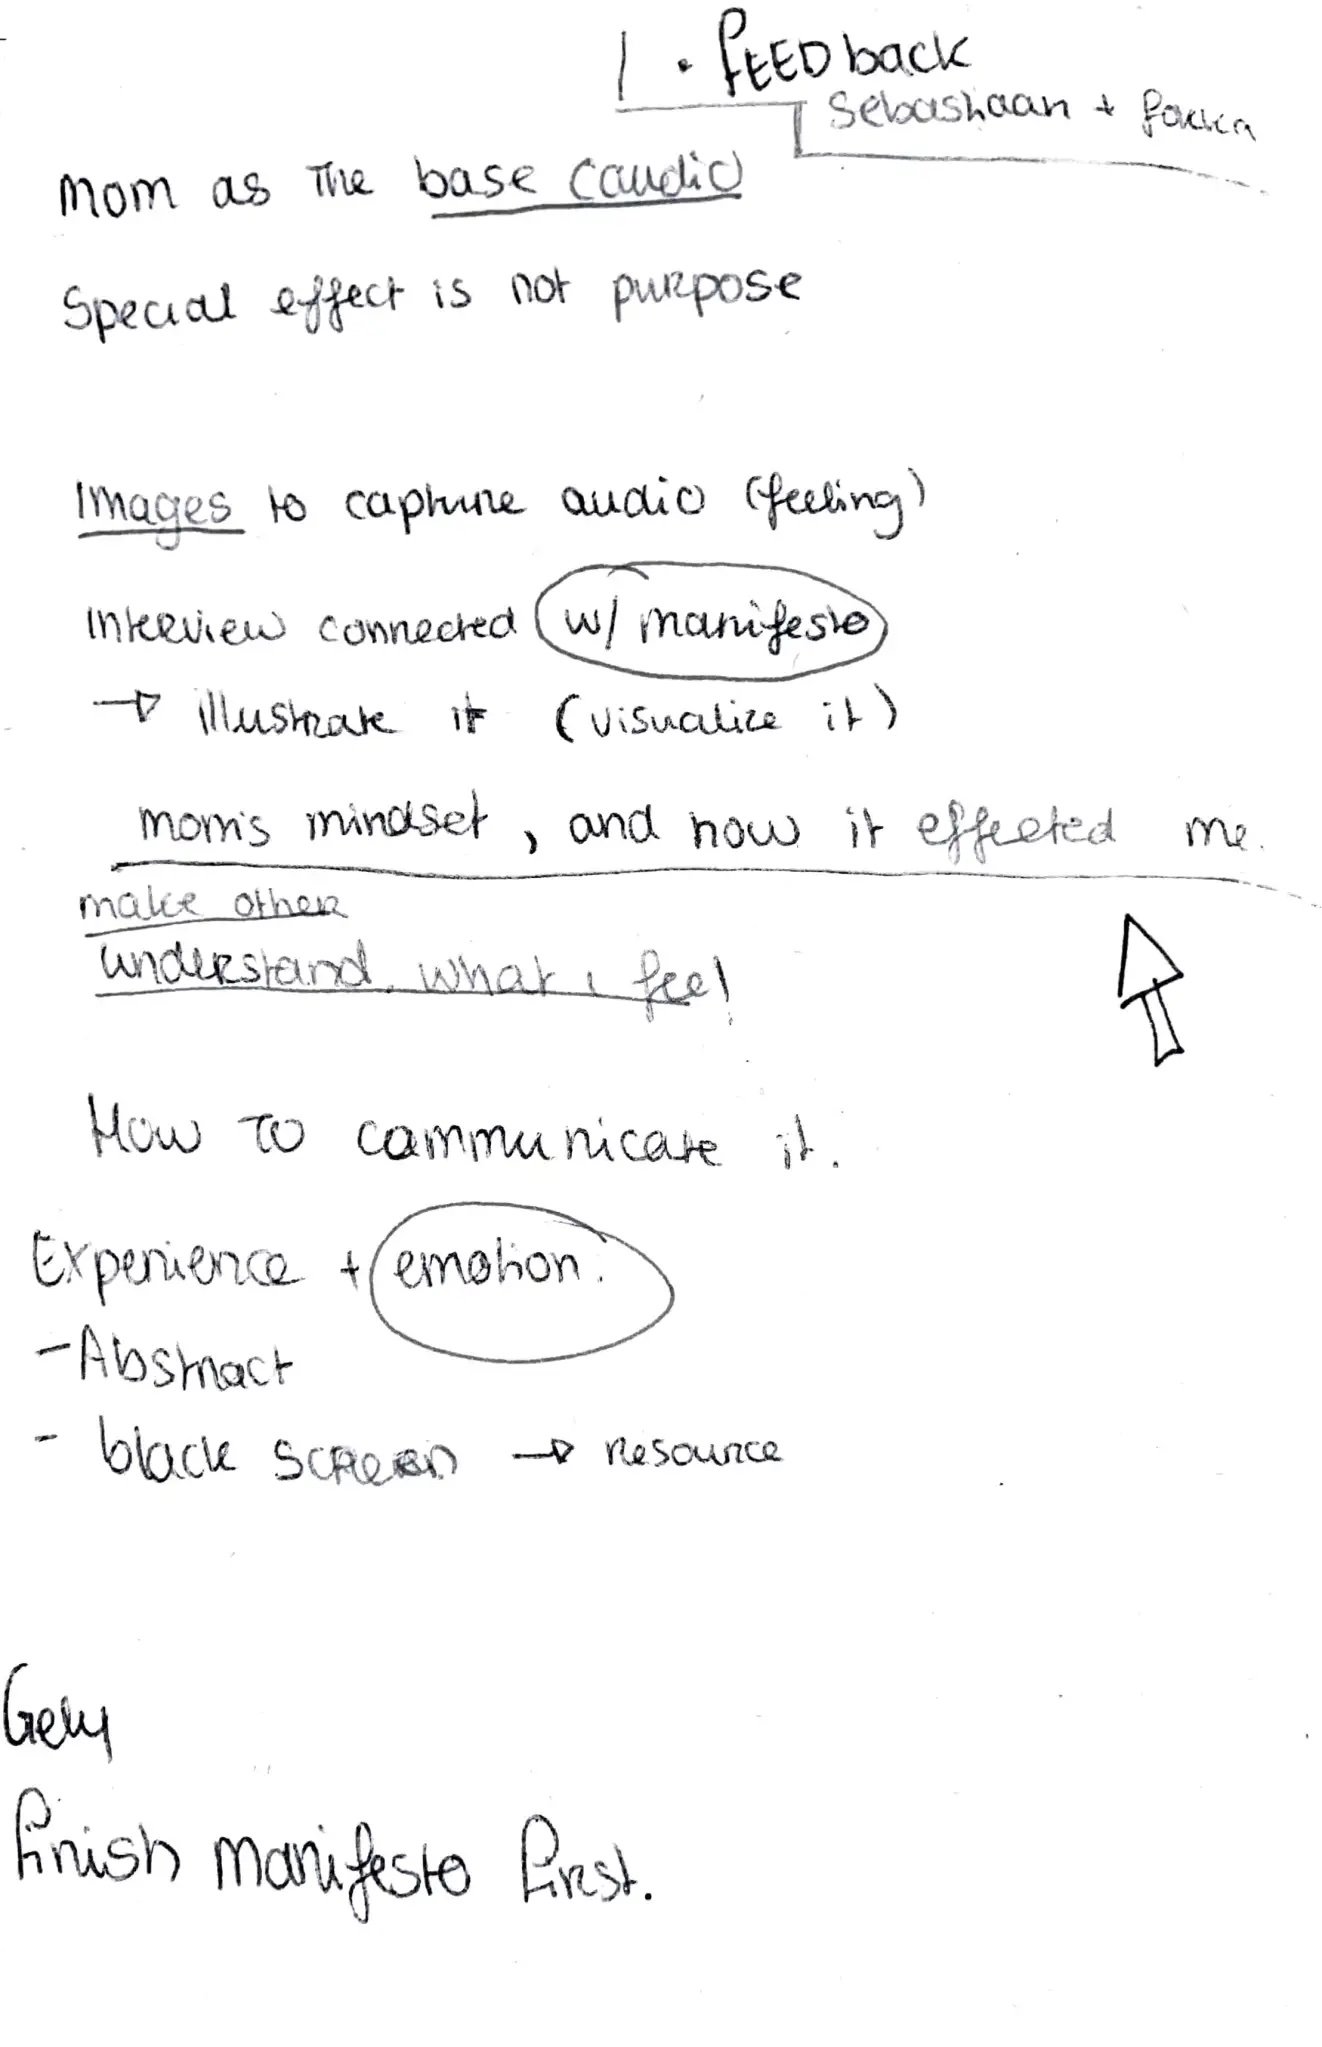 1. FEEDback
Sebastiaan +
Mom as The base (audio)
Special effect is not purpose
Images to capture audio (feeling)
Interview connected w/ manifesto
→ illustrate it (visualize it)
mom's mindset, and how it effected me.
make other
understand what i feel
How To communicate it.
Experience + emotion.
- Abstract
- black screen → resource
finish manifesto first.